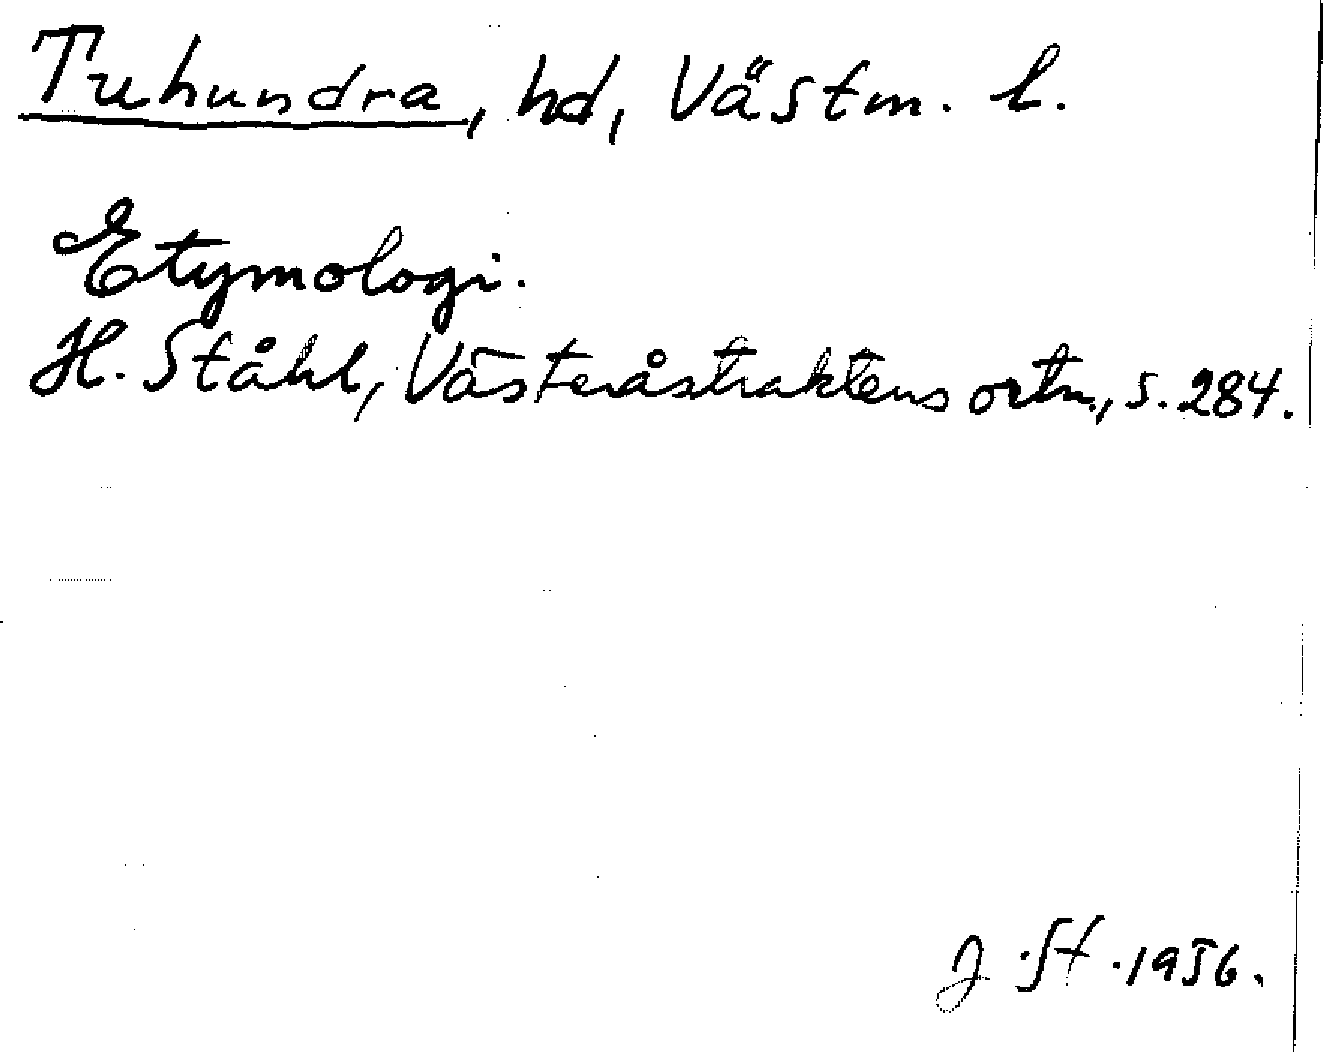 Tuhundra, hd, Västm. l.
Etymologi.
H. Ståhl, Västeråstraktens ortn., s. 284.
J. St. 1956.